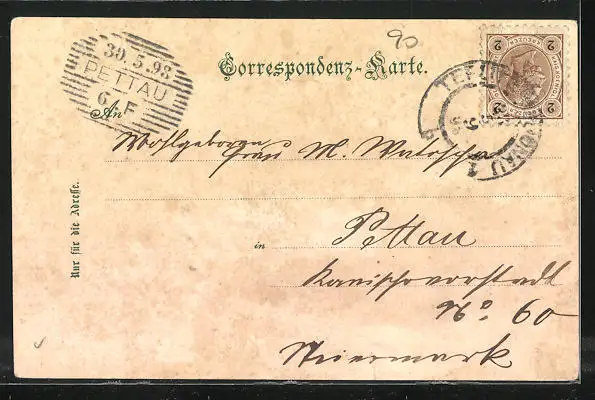 90
Correspondenz-Karte.
30.5.98
PETTAU
6. F
2 KREUZER 2
2 2
An
Wohlgeboren
Frau M.
in Pettau
Kanischavorstadt
No 60
Steiermark
Nur für die Adresse.